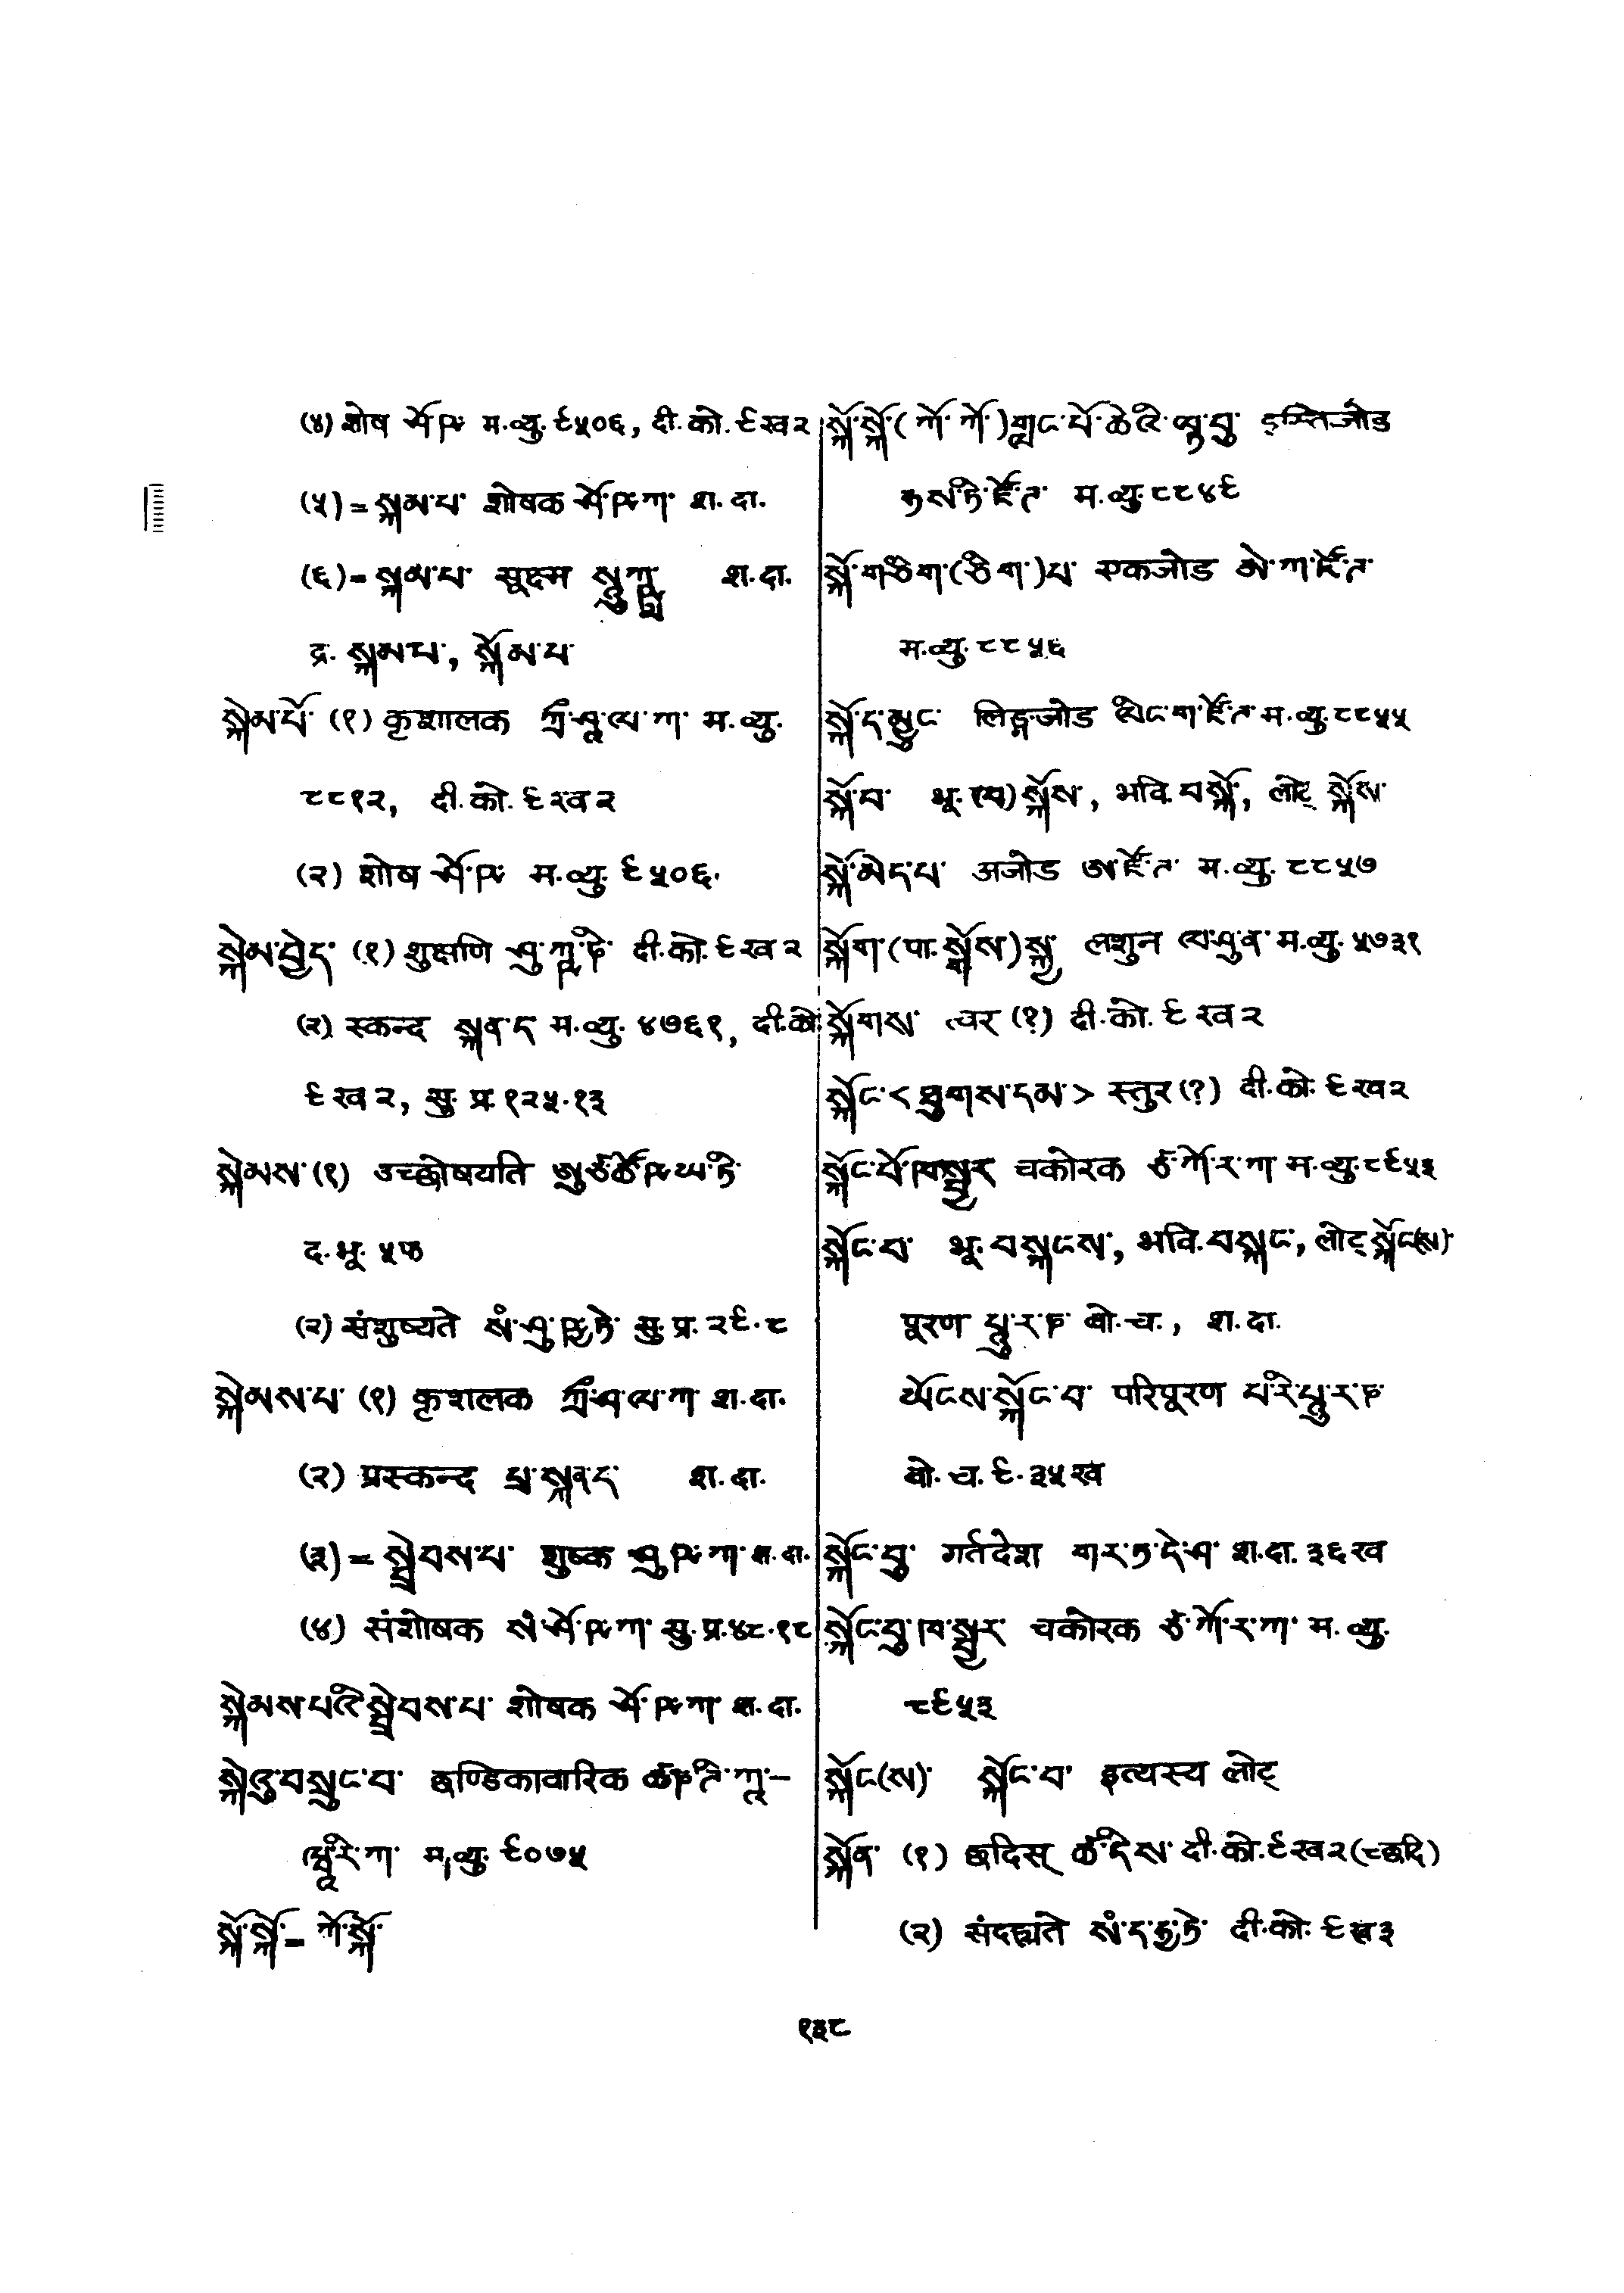 (४) शोष ཤོ་ཥ་ म.व्यु. ९५०६, दी.को. ९ख२
(५) = སྐམ་པ་ शोषक ཤོ་ཥ་ཀ་ श. दा.
(६) = སྐམ་པ་ सूक्ष्म སཱུ་ཀྵྨ श. दा.
द्र. སྐམ་པ་, སྐོམ་པ་
སྐེམ་པོ་ (१) कृशालक ཀྲྀ་ཤཱ་ལ་ཀ་ म.व्यु.
८८१२, दी.को. ९ख२
(२) शोष ཤོ་ཥ་ म.व्यु. ९५०६.
སྐེམ་བྱེད་ (१) शुक्षणि ཤུ་ཀྵ་ཎི་ दी.को. ९ख२
(२) स्कन्द སྐན་ད म.व्यु. ४७६१, दी.को.
९ख२, सु. प्र. १२५.१३
སྐེམས་ (१) उच्छोषयति ཨུཙྪོ་ཥ་ཡ་ཏི་
द. भू. ५
(२) संशुष्यते སཾ་ཤུ་ཥྱ་ཏེ་ सु. प्र. २९.८
སྐེམས་པ་ (१) कृशलक ཀྲྀ་ཤ་ལ་ཀ་ श. दा.
(२) प्रस्कन्द པྲ་སྐན་ད་ श. दा.
(३) = སྦྲེབས་པ་ शुष्क ཤུ་ཥ་ཀ་ श. दा.
(४) संशोषक སཾ་ཤོ་ཥ་ཀ་ सु. प्र. ४८.१८
སྐེམས་པའི་སྦྲེབས་པ་ शोषक ཤོ་ཥ་ཀ་ श. दा.
སྐེའུ་བསྲུང་བ་ छण्डिकावारिक ཚཎ་ཌི་ཀཱ་-
ཝཱ་རི་ཀ་ म.व्यु. ९०७५
སྐོ་སྐོ་ = ཀོ་སྐོ་
སྐོ་སྐོ་(ཀོ་ཀོ་)གླང་པོ་ཆེའི་ལྟ་བུ་ हस्तिजोड
ཧསཏི་ཛོ་ཌ་ म.व्यु. ८८४९
སྐོ་གཅིག་(ཅིག་)པ་ एकजोड ཨེ་ཀ་ཛོ་ཌ་
म.व्यु. ८८५६
སྐོ་ད་མྱུང་ लिङ्गजोड ལིང་ག་ཛོ་ཌ་ म.व्यु. ८८५५
སྐོ་བ་ भू. (བ)སྐོས་, भवि. བསྐོ་, लोट् སྐོས་
སྐོ་མེད་པ་ अजोड ཨ་ཛོ་ཌ་ म.व्यु. ८८५७
སྐོག་(པा.སྒོས་)སྐྱ་ लशुन ལ་ཤུ་ན་ म.व्यु. ५७३१
སྐོགས་ त्वर (?) दी.को. ९ख२
སྐོང་<ཐུགས་དམ་> स्तुर (?) दी.को. ९ख२
སྐོང་པོ་ཁ་སྦྱར་ चकोरक ཙ་ཀོ་ར་ཀ་ म.व्यु. ८९५३
སྐོང་བ་ भू. བསྐངས་, भवि. བསྐང་, लोट् སྐོང(ས)་
पूरण པཱུ་ར་ཎ་ बो.च., श. दा.
ཡོངས་སྐོང་བ་ परिपूरण པ་རི་པཱུ་ར་ཎ་
बो. च. ९.३५ख
སྐོང་བུ་ गर्तदेश གར་ཏ་དེ་ཤ་ श. दा. ३६ख
སྐོང་བུ་ཁ་སྦྱར་ चकोरक ཙ་ཀོ་ར་ཀ་ म.व्यु.
८९५३
སྐོང(ས)་ སྐོང་བ་ इत्यस्य लोट्
སྐོན་ (१) छदिस् ཚ་དིས་ दी.को. ९ख२ (८छदि)
(२) संदह्यते སཾ་ད་ཧྱ་ཏེ་ दी.को. ९ख३
१३८